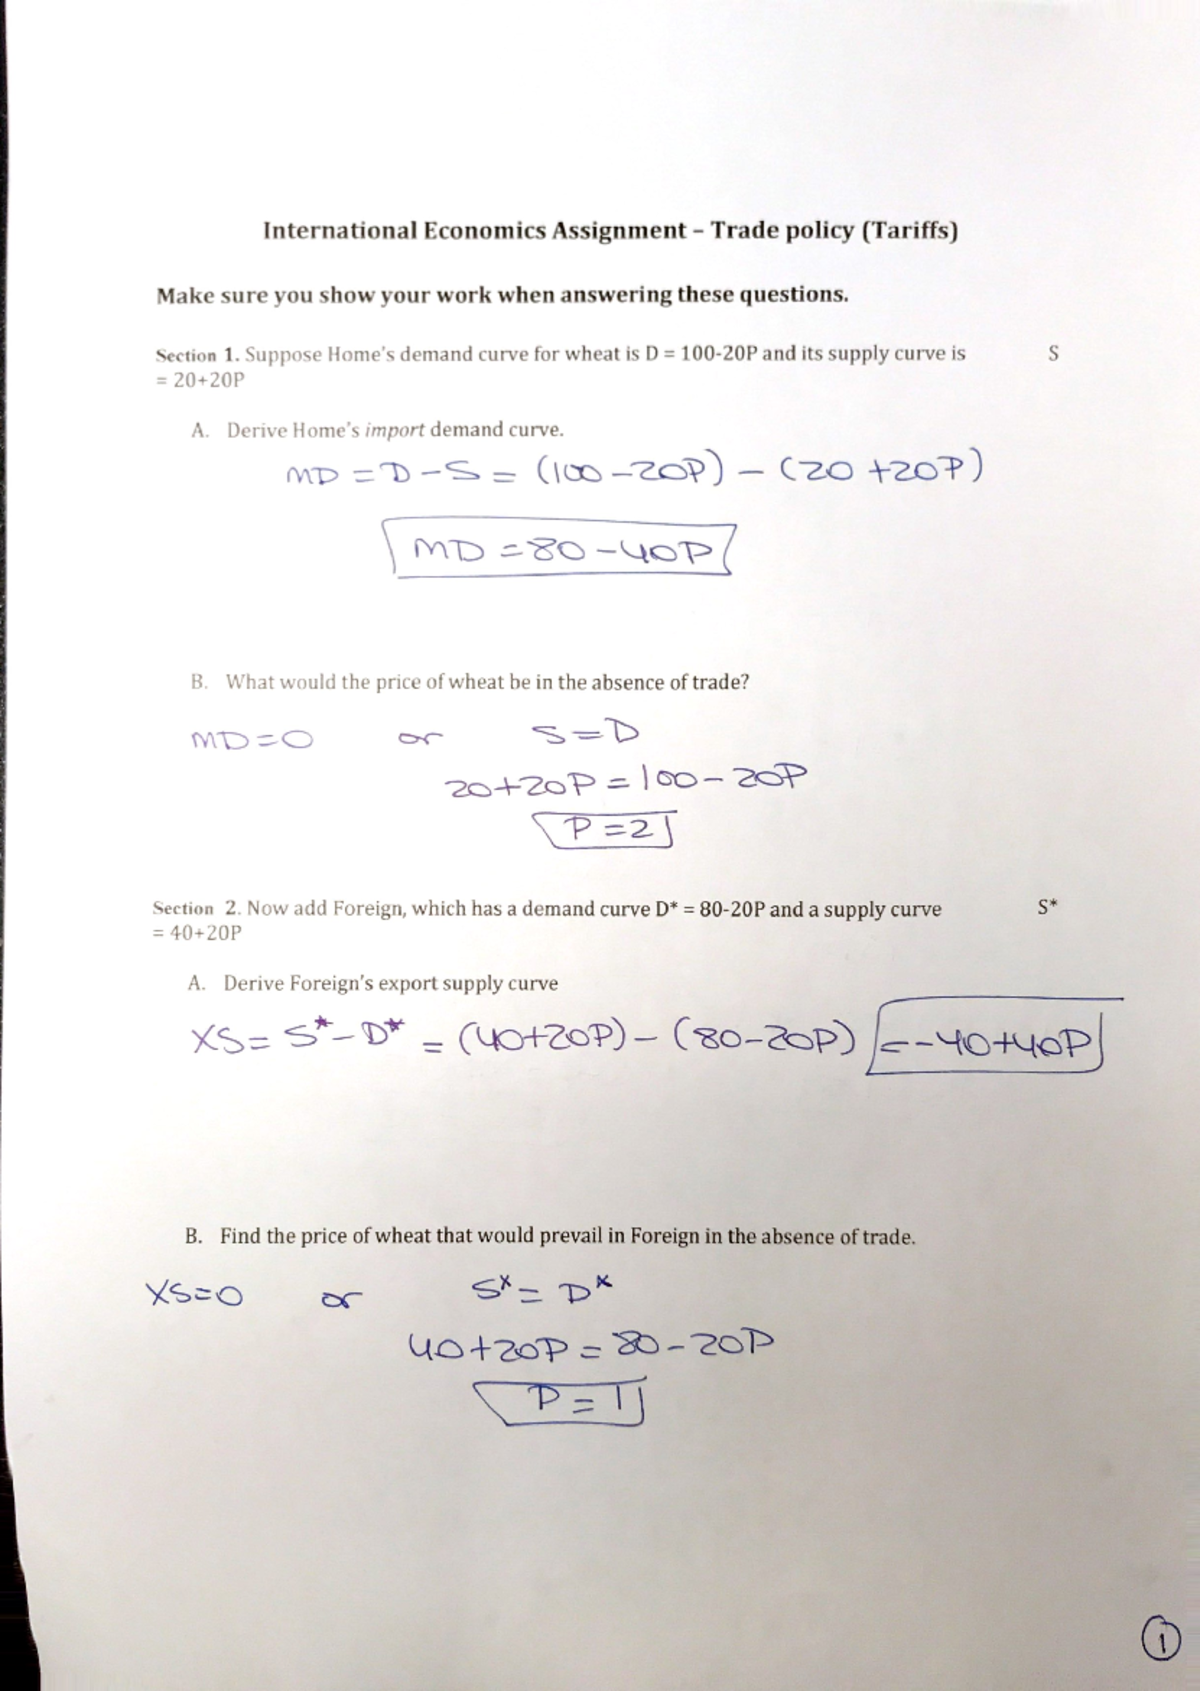 International Economics Assignment – Trade policy (Tariffs)
Make sure you show your work when answering these questions.
Section 1. Suppose Home's demand curve for wheat is D = 100-20P and its supply curve is S
= 20+20P
A. Derive Home's import demand curve.
MD = D - S = (100 - 20P) - (20 + 20P)
MD = 80 - 40P
B. What would the price of wheat be in the absence of trade?
MD = 0 or S = D
20 + 20P = 100 - 20P
P = 2
Section 2. Now add Foreign, which has a demand curve D* = 80-20P and a supply curve S*
= 40+20P
A. Derive Foreign's export supply curve
XS = S* - D* = (40+20P) - (80-20P) = -40+40P
B. Find the price of wheat that would prevail in Foreign in the absence of trade.
XS = 0 or S* = D*
40 + 20P = 80 - 20P
P = 1
1